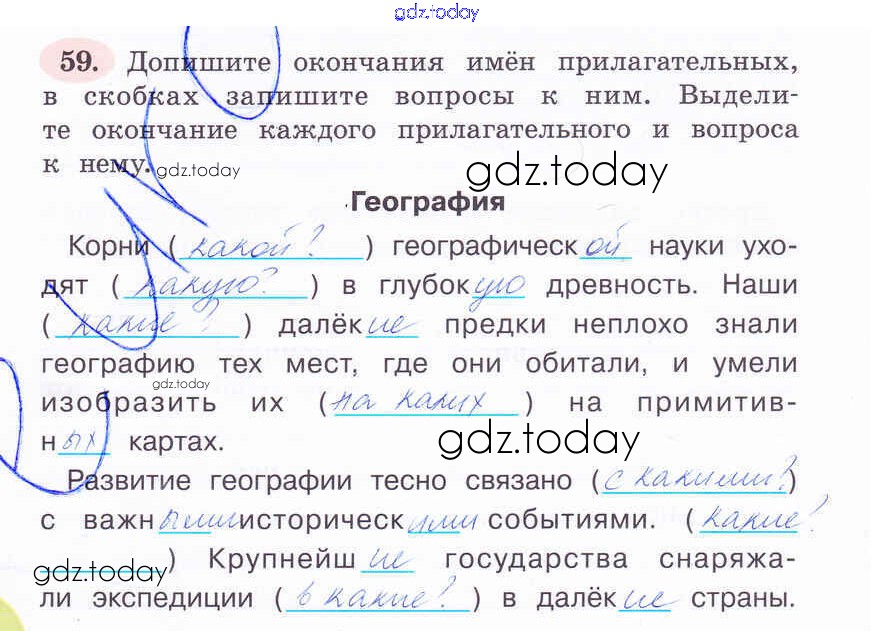 gdz.today
59. Допишите окончания имён прилагательных,
в скобках запишите вопросы к ним. Выдели-
те окончание каждого прилагательного и вопроса
к нему. gdz.today
gdz.today
География
Корни ( какой? ) географической науки ухо-
дят ( какую? ) в глубокую древность. Наши
( какие? ) далёкие предки неплохо знали
географию тех мест, где они обитали, и умели
gdz.today
изобразить их ( на каких ) на примитив-
ных картах.
gdz.today
Развитие географии тесно связано ( с какими? )
с важными историческими событиями. ( какие?
gdz.today ) Крупнейшие государства снаряжа-
ли экспедиции ( в какие? ) в далёкие страны.